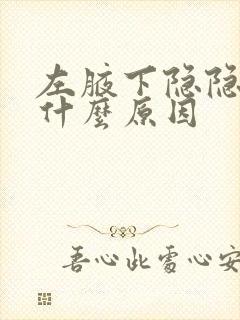 左腋下隐隐
什麼原因
吾心此處心安